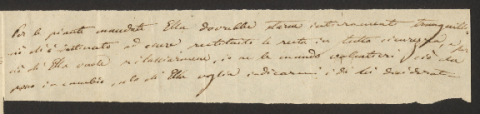 Per le piante mandate Ella dovrebbe starne interamente tranquillo
ciò ch'è destinato ad essere restituito lo resta in tutta sicurezza, per
ciò ch'Ella vuole rilasciarmene, io ne le mando volentieri ciò che
posso in cambio, solo ch'Ella voglia indicarmi i di lei desiderati